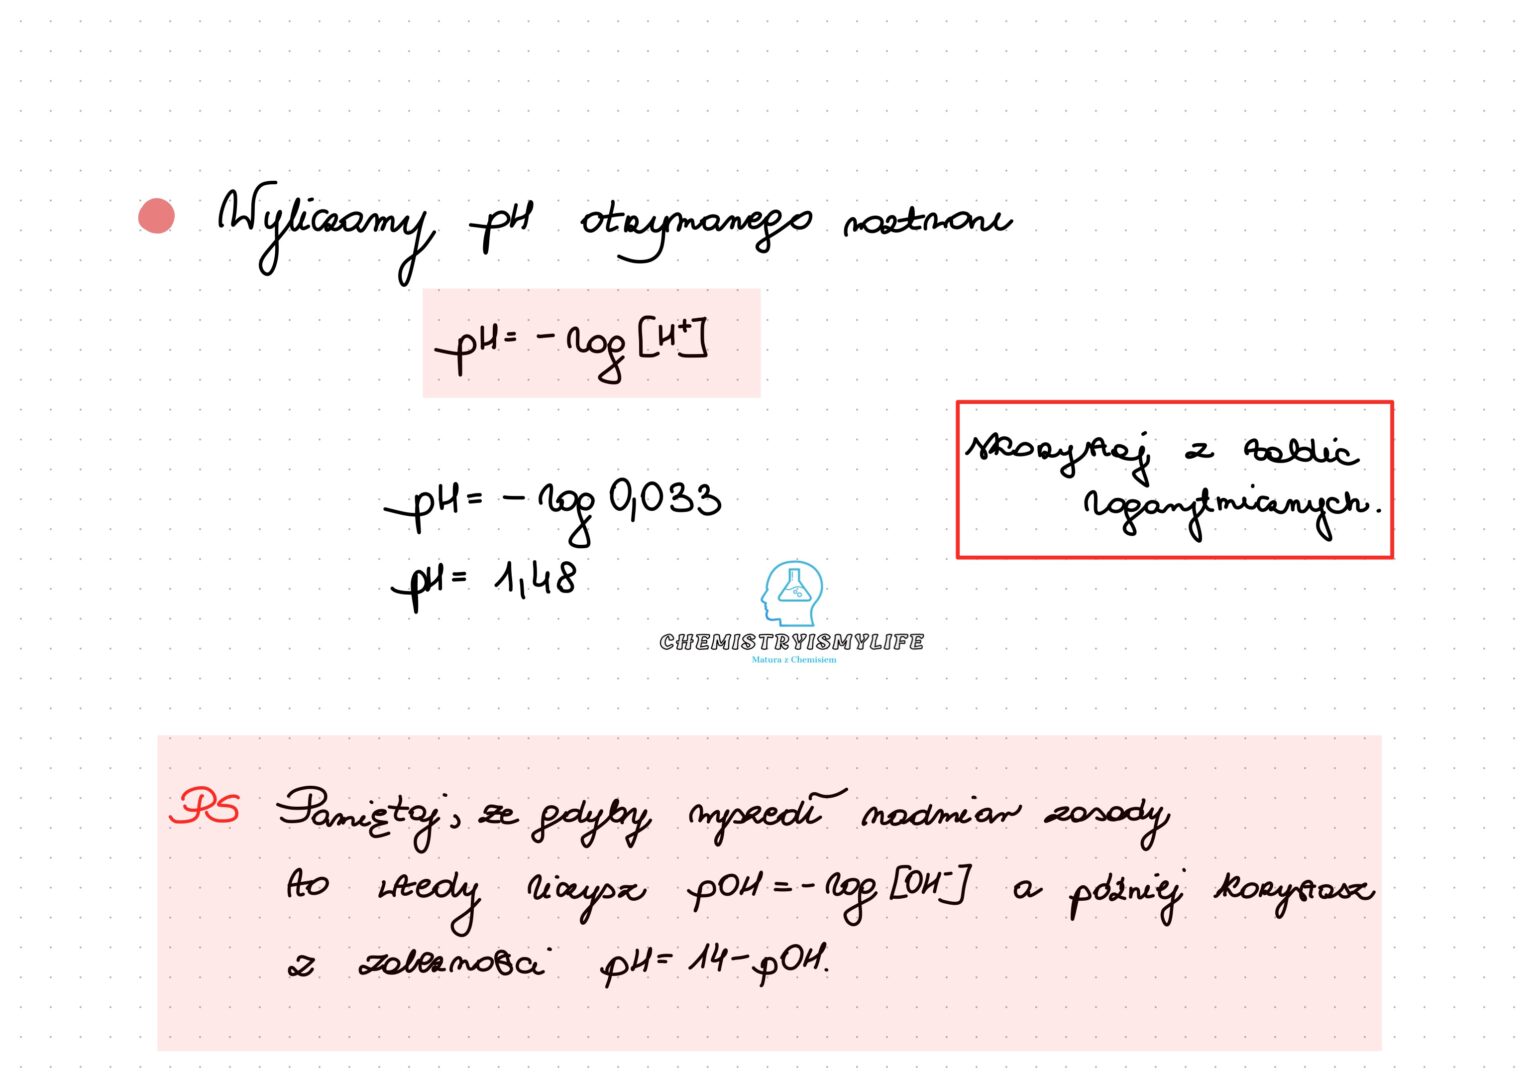 Wyliczamy pH otrzymanego roztworu
pH = - log [H⁺]
skorzystaj z tablic
logarytmicznych.
pH = - log 0,033
pH = 1,48
CHEMISTRYISMYLIFE
Matura z Chemisiem
PS Pamiętaj, że gdyby wyszedł nadmiar zasady
to wtedy liczysz pOH = - log [OH⁻] a później korzystasz
z zależności pH = 14 - pOH.